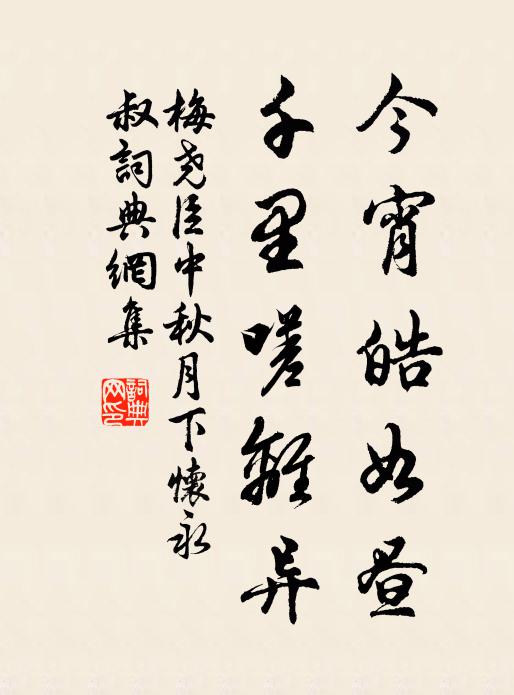 今宵皓如昼
千里嗟離异
梅尧臣中秋月下懷永
叔詞典網集
詞典
网印